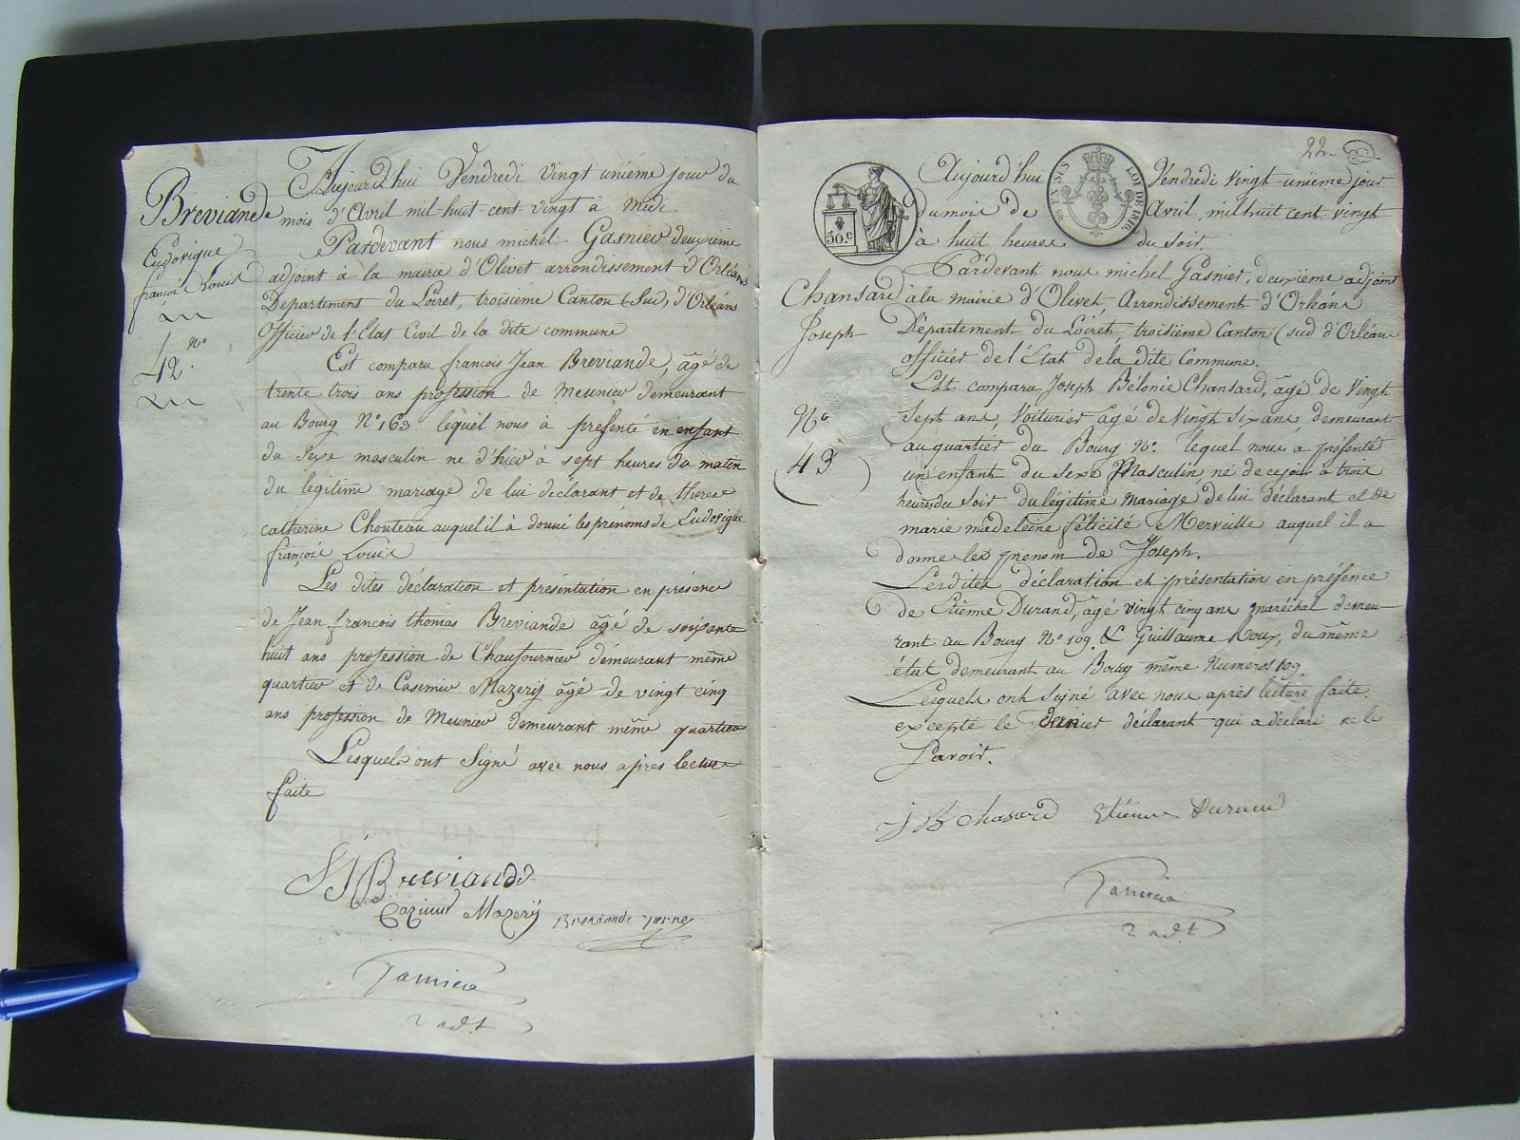 Breviande
Ludovique
françois Louis
N°
42
Aujourd'hui Vendredi vingt unième jour du
mois d'Avril mil huit cent vingt à Midi
Pardevant nous michel Gasnier deuxième
adjoint à la mairie d'Olivet arrondissement d'Orléans
Département du Loiret, troisieme Canton (Sud) d'Orléans
Officier de l'Etat Civil de la dite commune
Est comparu françois Jean Breviande, âgé de
trente trois ans profession de Meunier demeurant
au Bourg N° 163 lequel nous à présenté un enfant
du sexe masculin né d'hier à sept heures du matin
du legitime mariage de lui déclarant et de therese
catherine Chouteau auquel il à donné les prénoms de Ludovique
françois Louis
Les dites déclaration et présentation en présence
de Jean françois thomas Breviande âgé de soixante
huit ans profession de Chaufournier demeurant même
quartier et de Casimir Mazerÿ âgé de vingt cinq
ans profession de Meunier demeurant même quartier
Lesquels ont Signé avec nous après lecture
faite
Breviande
Cazimir Mazerÿ Breviande
2 adt
22
50 c
LOI DE 1816
Chansard
Joseph
N°
43
Aujourd'hui Vendredi vingt unième jour
du mois de Avril, mil huit cent vingt
à huit heures du soir.
Pardevant nous michel Gasnier, deuxième adjoint
à la mairie d'Olivet Arrondissement d'Orléans
Département du Loiret, troisième Canton (sud d'Orléans
officier de l'Etat de la dite Commune.
Est comparu Joseph Belonie Chansard, âgé de vingt
sept ans, Voiturier âgé de vingt six ans demeurant
au quartier du Bourg N°. lequel nous a présenté
un enfant du sexe Masculin, né de ce jour à trois
heures du soir du légitime mariage de lui déclarant et de
marie madeleine félicité Merveille auquel il a
donné les prenom de Joseph.
Lesdites déclaration et présentation en présence
de Etienne Durand, âgé vingt cinq ans maréchal demeu-
rant au Bourg N° 109. & Guillaume Roux, du même
état demeurant au Bourg même Numeros 109
Lesquels ont signé avec nous après lecture faite.
excepté le dernier déclarant qui a déclaré ne le
Savoir.
J B chasard Etienne Durand
2 adt